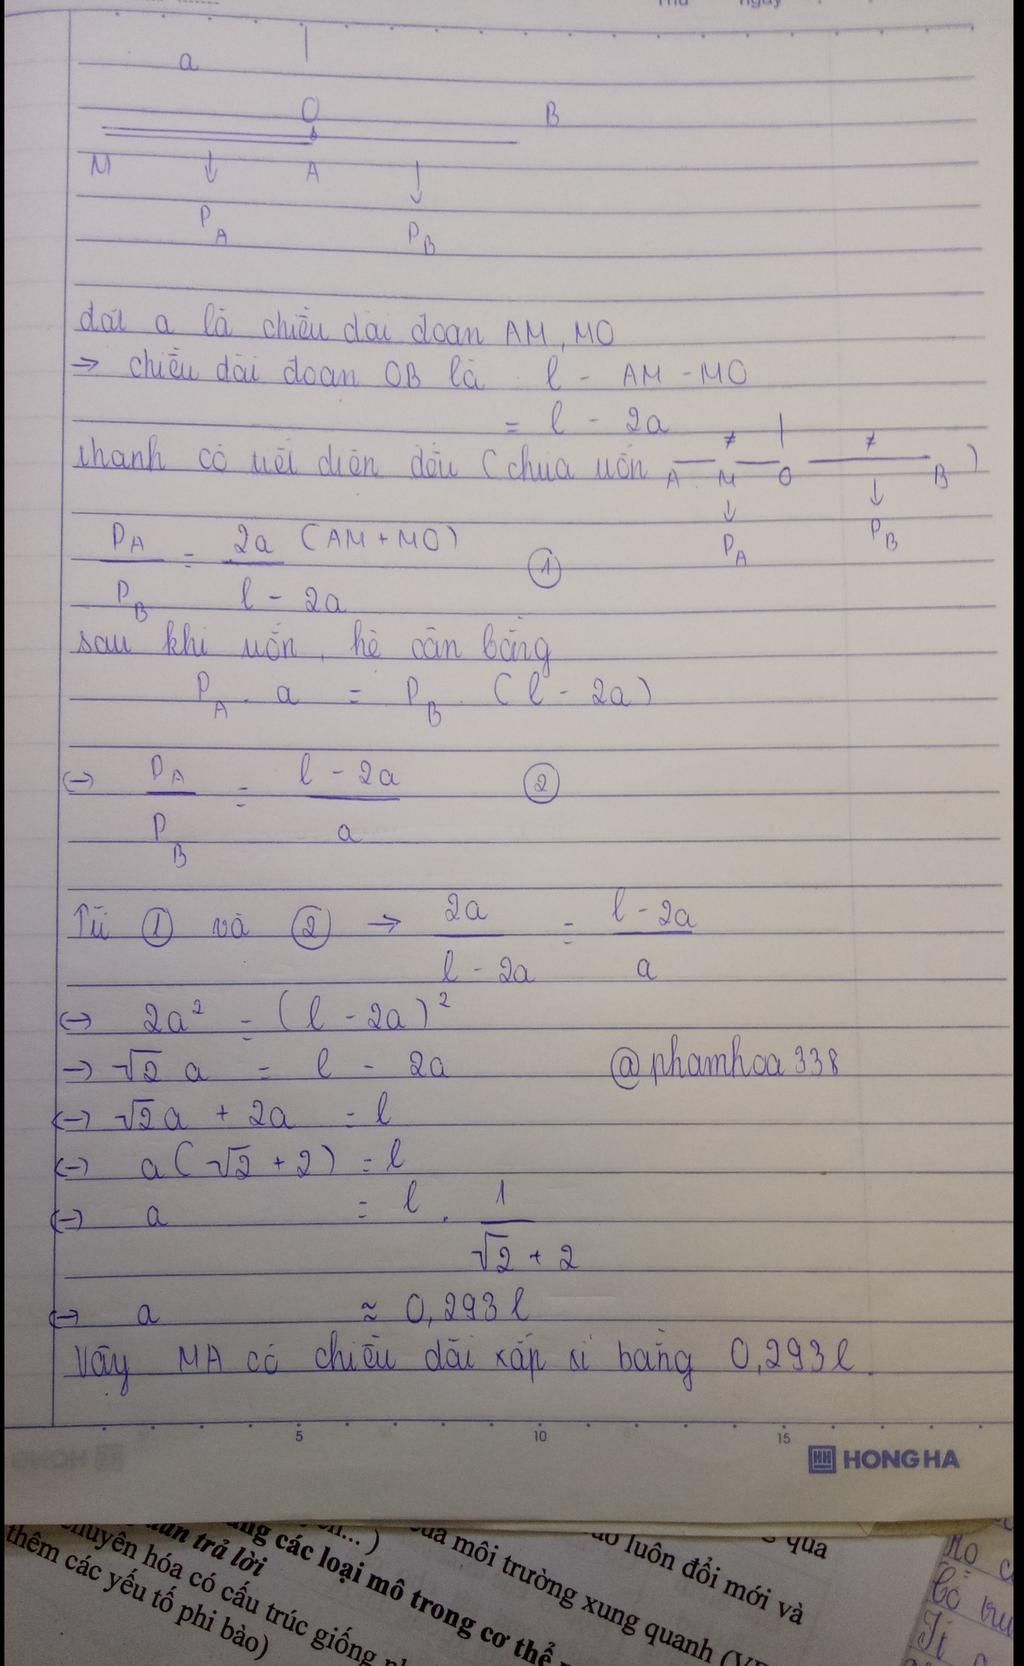 Thứ ngày
a
O B
M A
P_A P_B
đặt a là chiều dài đoạn AM, MO
→ chiều dài đoạn OB là l - AM - MO
= l - 2a
thanh có tiết diện đều (chưa uốn A M O B)
P_A P_B
P_A/P_B = 2a (AM + MO)/(l - 2a) ①
sau khi uốn, hệ cân bằng
P_A . a = P_B . (l - 2a)
<-> P_A/P_B = (l - 2a)/a ②
Từ ① và ② → 2a/(l - 2a) = (l - 2a)/a
<-> 2a² = (l - 2a)²
-> √2 a = l - 2a @phamhoa338
<-> √2a + 2a = l
<-> a(√2 + 2) = l
<-> a = l . 1/(√2 + 2)
<-> a ≈ 0,293l
Vậy MA có chiều dài xấp xỉ bằng 0,293l.
5 10 15
HONG HA
ng các loại mô trong cơ thể
trả lời
chuyên hóa có cấu trúc giống
thêm các yếu tố phi bào)
của môi trường xung quanh
luôn đổi mới và
qua